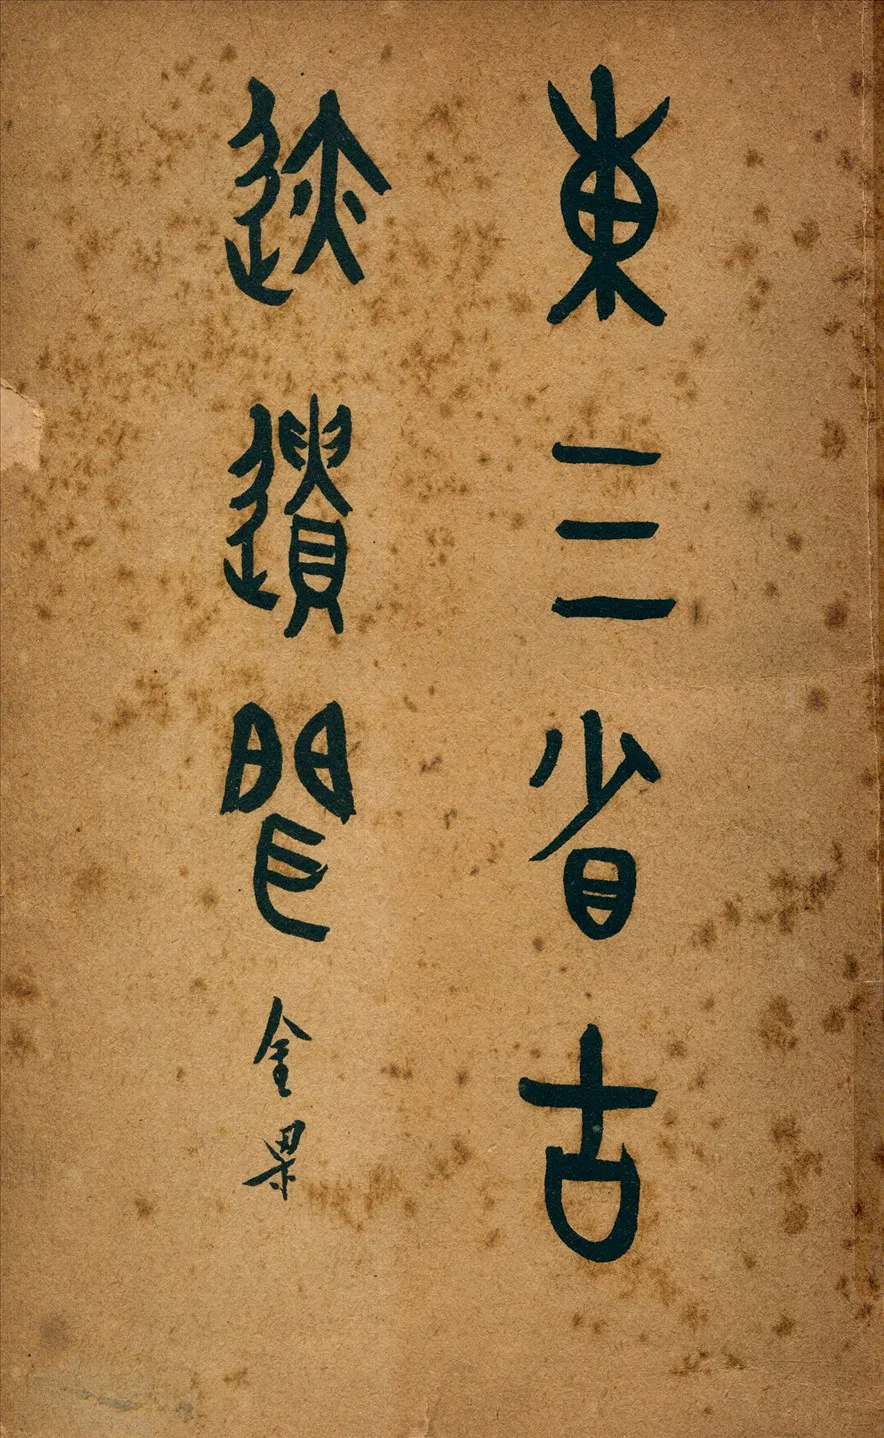 東三省古
迹遺聞 金梁